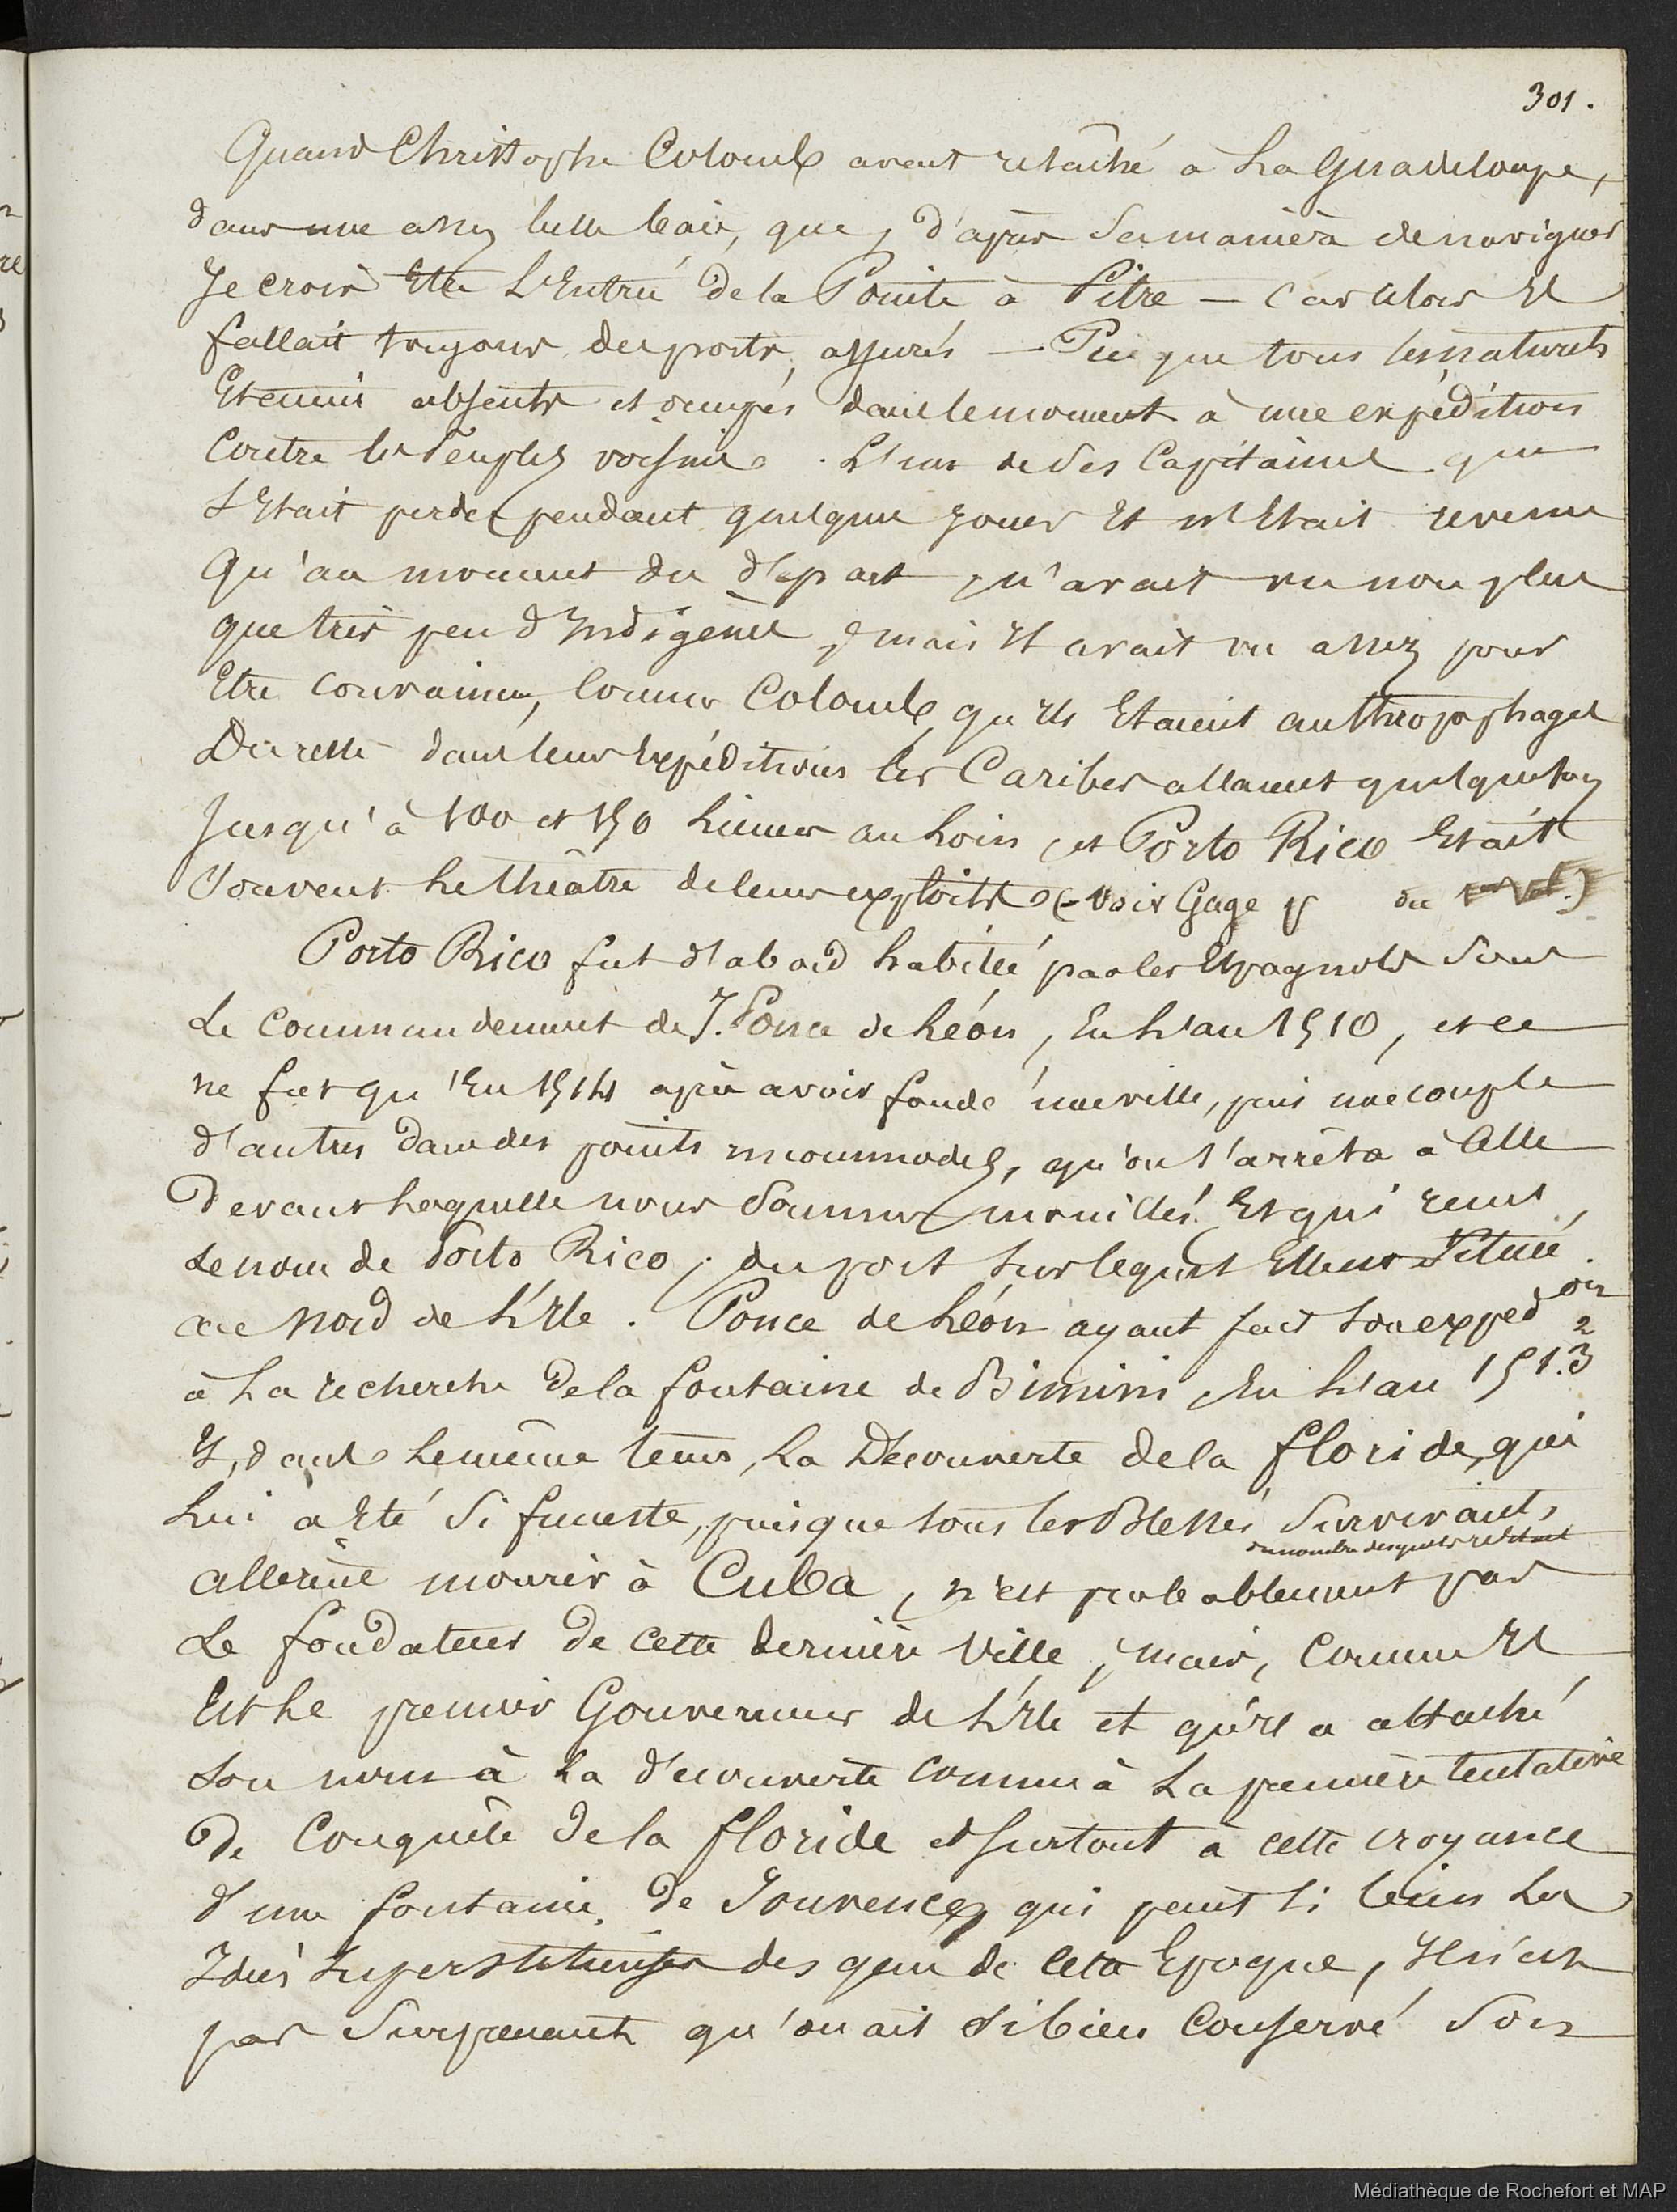 301.
Quand Christophe Colomb avait relâché à La Guadeloupe,
dans une assez belle baie, que, d'après sa manière de naviguer
Je crois Etre L'Entrée de la Pointe à Pitre — car alors Il
fallait toujours des ports assurés — Puisque tous les naturels
Etaient absents et occupés dans le moment à une expédition
Contre les Peuples voisins. L'un de Ses Capitaines qui
S'Etait perdu pendant quelques jours Et n'Etait revenu
Qu'au moment du départ, n'avait vu non plus
que très peu d'Indigènes, mais Il avait vu assez pour
Etre convaincu, Comme Colomb, qu'Ils Etaient anthropophages
Du reste dans leurs Expéditions les Caribes allaient quelquefois
Jusqu'à 100 et 150 Lieues au Loin, et Porto Rico Etait
Souvent Le théâtre de leurs exploits. (Voir Gage p du
Porto Rico fut d'abord habitée par les Espagnols Sous
Le Commandement de J. Ponce de Léon, En L'an 1510, et ce
ne fut qu'En 1514 après avoir fondé une ville, puis une couple
d'autres dans des points incommodes, qu'on s'arrêta à Celle
Devant Laquelle nous Sommes mouillés Et qui reçut
Le nom de Porto Rico, du port Sur lequel Elle est Située
au Nord de L'Ile. Ponce de Léon ayant fait son expedon
à La recherche de la fontaine de Bimini, En L'an 1513 2
Et, dans Le même tems, La Découverte de la Floride, qui
Lui a Eté Si funeste, puisque tous les Blessés Survivants,
du nombre desquels il Etait
allèrent mourir à Cuba, n'est probablement pas
Le fondateur de cette dernière Ville, mais, Comme Il
Est Le premier Gouverneur de L'Ile et qu'Il a attaché
Son nom à La découverte comme à La première tentative
De Conquête de la Floride et Surtout à cette croyance
d'une fontaine de Jouvence, qui peint Si bien Les
Idées Superstitieuses des gens de cette Epoque, Il n'est
pas Surprenant qu'on ait Si bien Conservé Son
Médiathèque de Rochefort et MAP